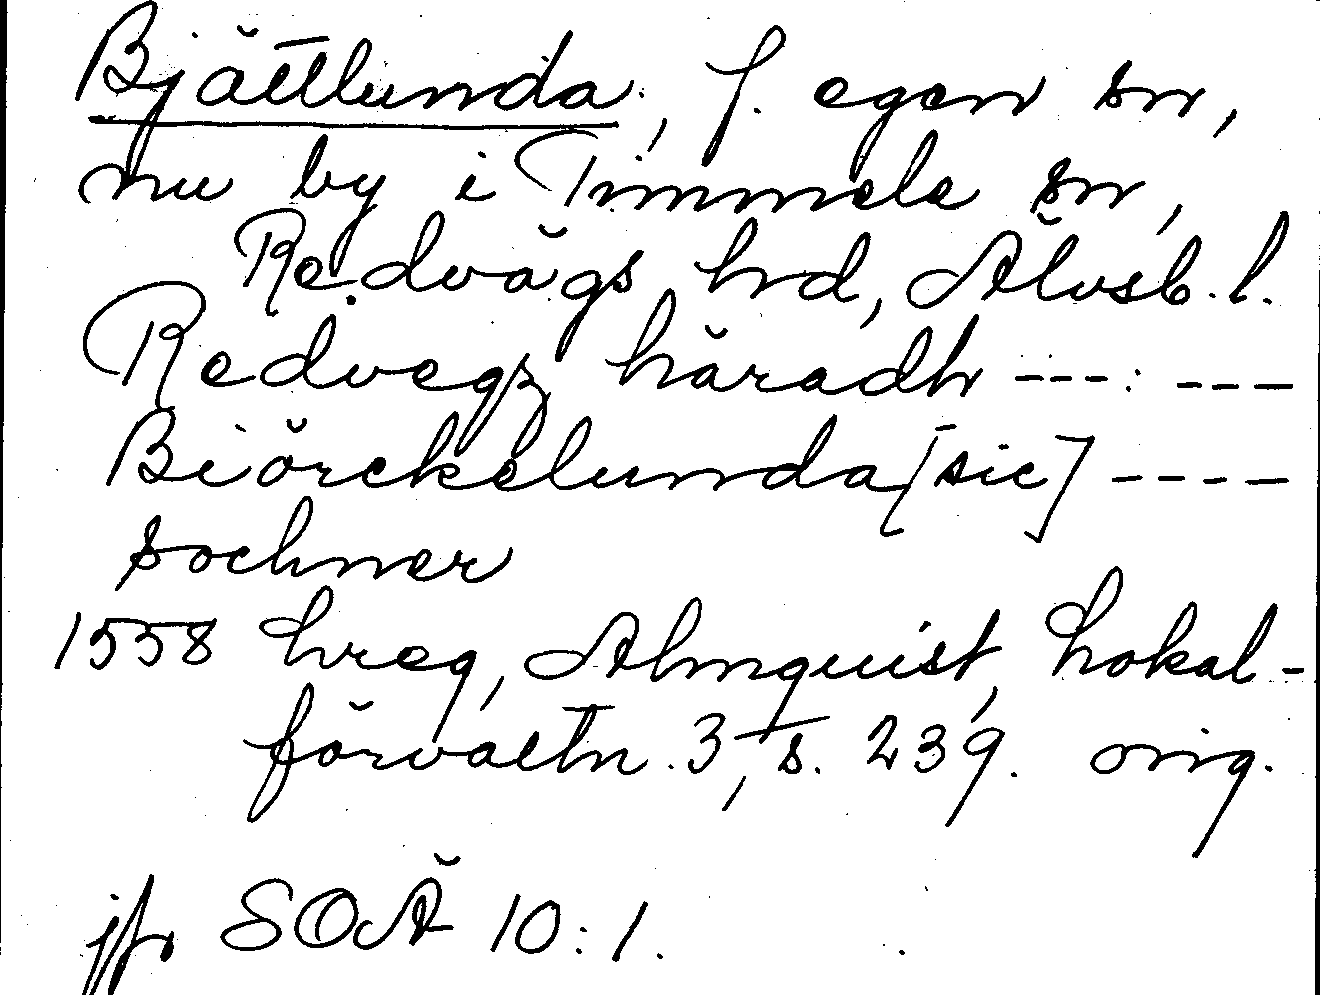 Bjättlunda, f. egen sn,
nu by i Timmele sn,
Redvägs hd, Älvsb. l.
Redvegz häradh ---: ---
Biörckelunda [sic] ----
sochner
1558 hreg, Almquist, Lokal-
förvaltn. 3, s. 239. orig.
jfr SOÄ 10:1.